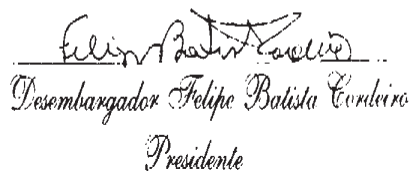 Felipe Batista Cordeiro
Desembargador Felipe Batista Cordeiro
Presidente